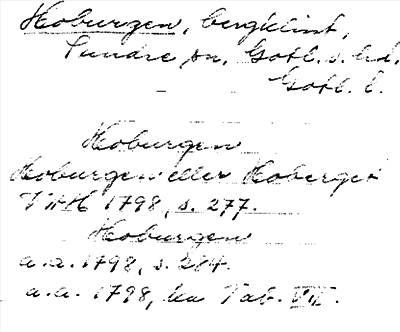 Hoburgen, bergklint,
Sundre sn, Gotl. s. hd.
Gotl. l.
Hoburgen
Hoburgen eller Hoberget
VHH 1798, s. 277.
Hoburgen
a.a. 1798, s. 284.
a.a. 1798, Tab. VII.